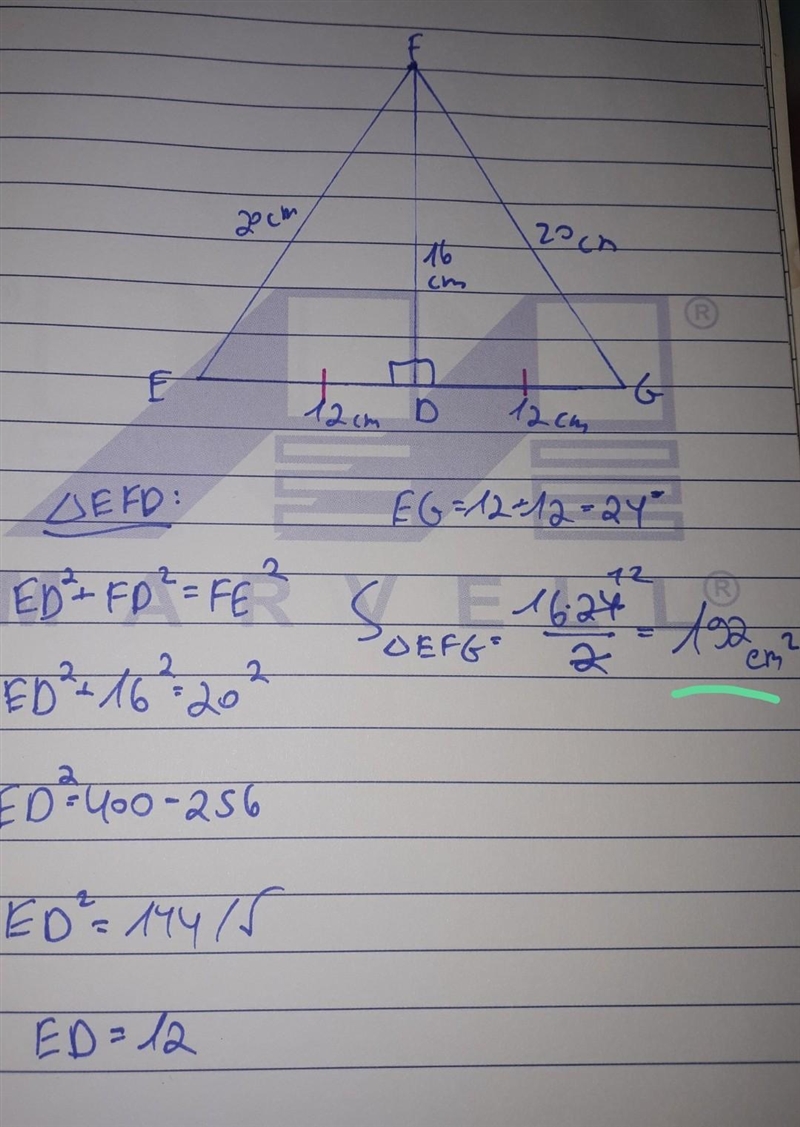 F
20cm
20cm
16
cm
E
12cm
D
12cm
G
®
△EFD:
EG=12+12=24
ED²+FD²=FE²
S△EFG= 16·24/2 = 192cm²
12
MARVELL®
ED²+16²=20²
ED²=400-256
ED²=144/√
ED=12